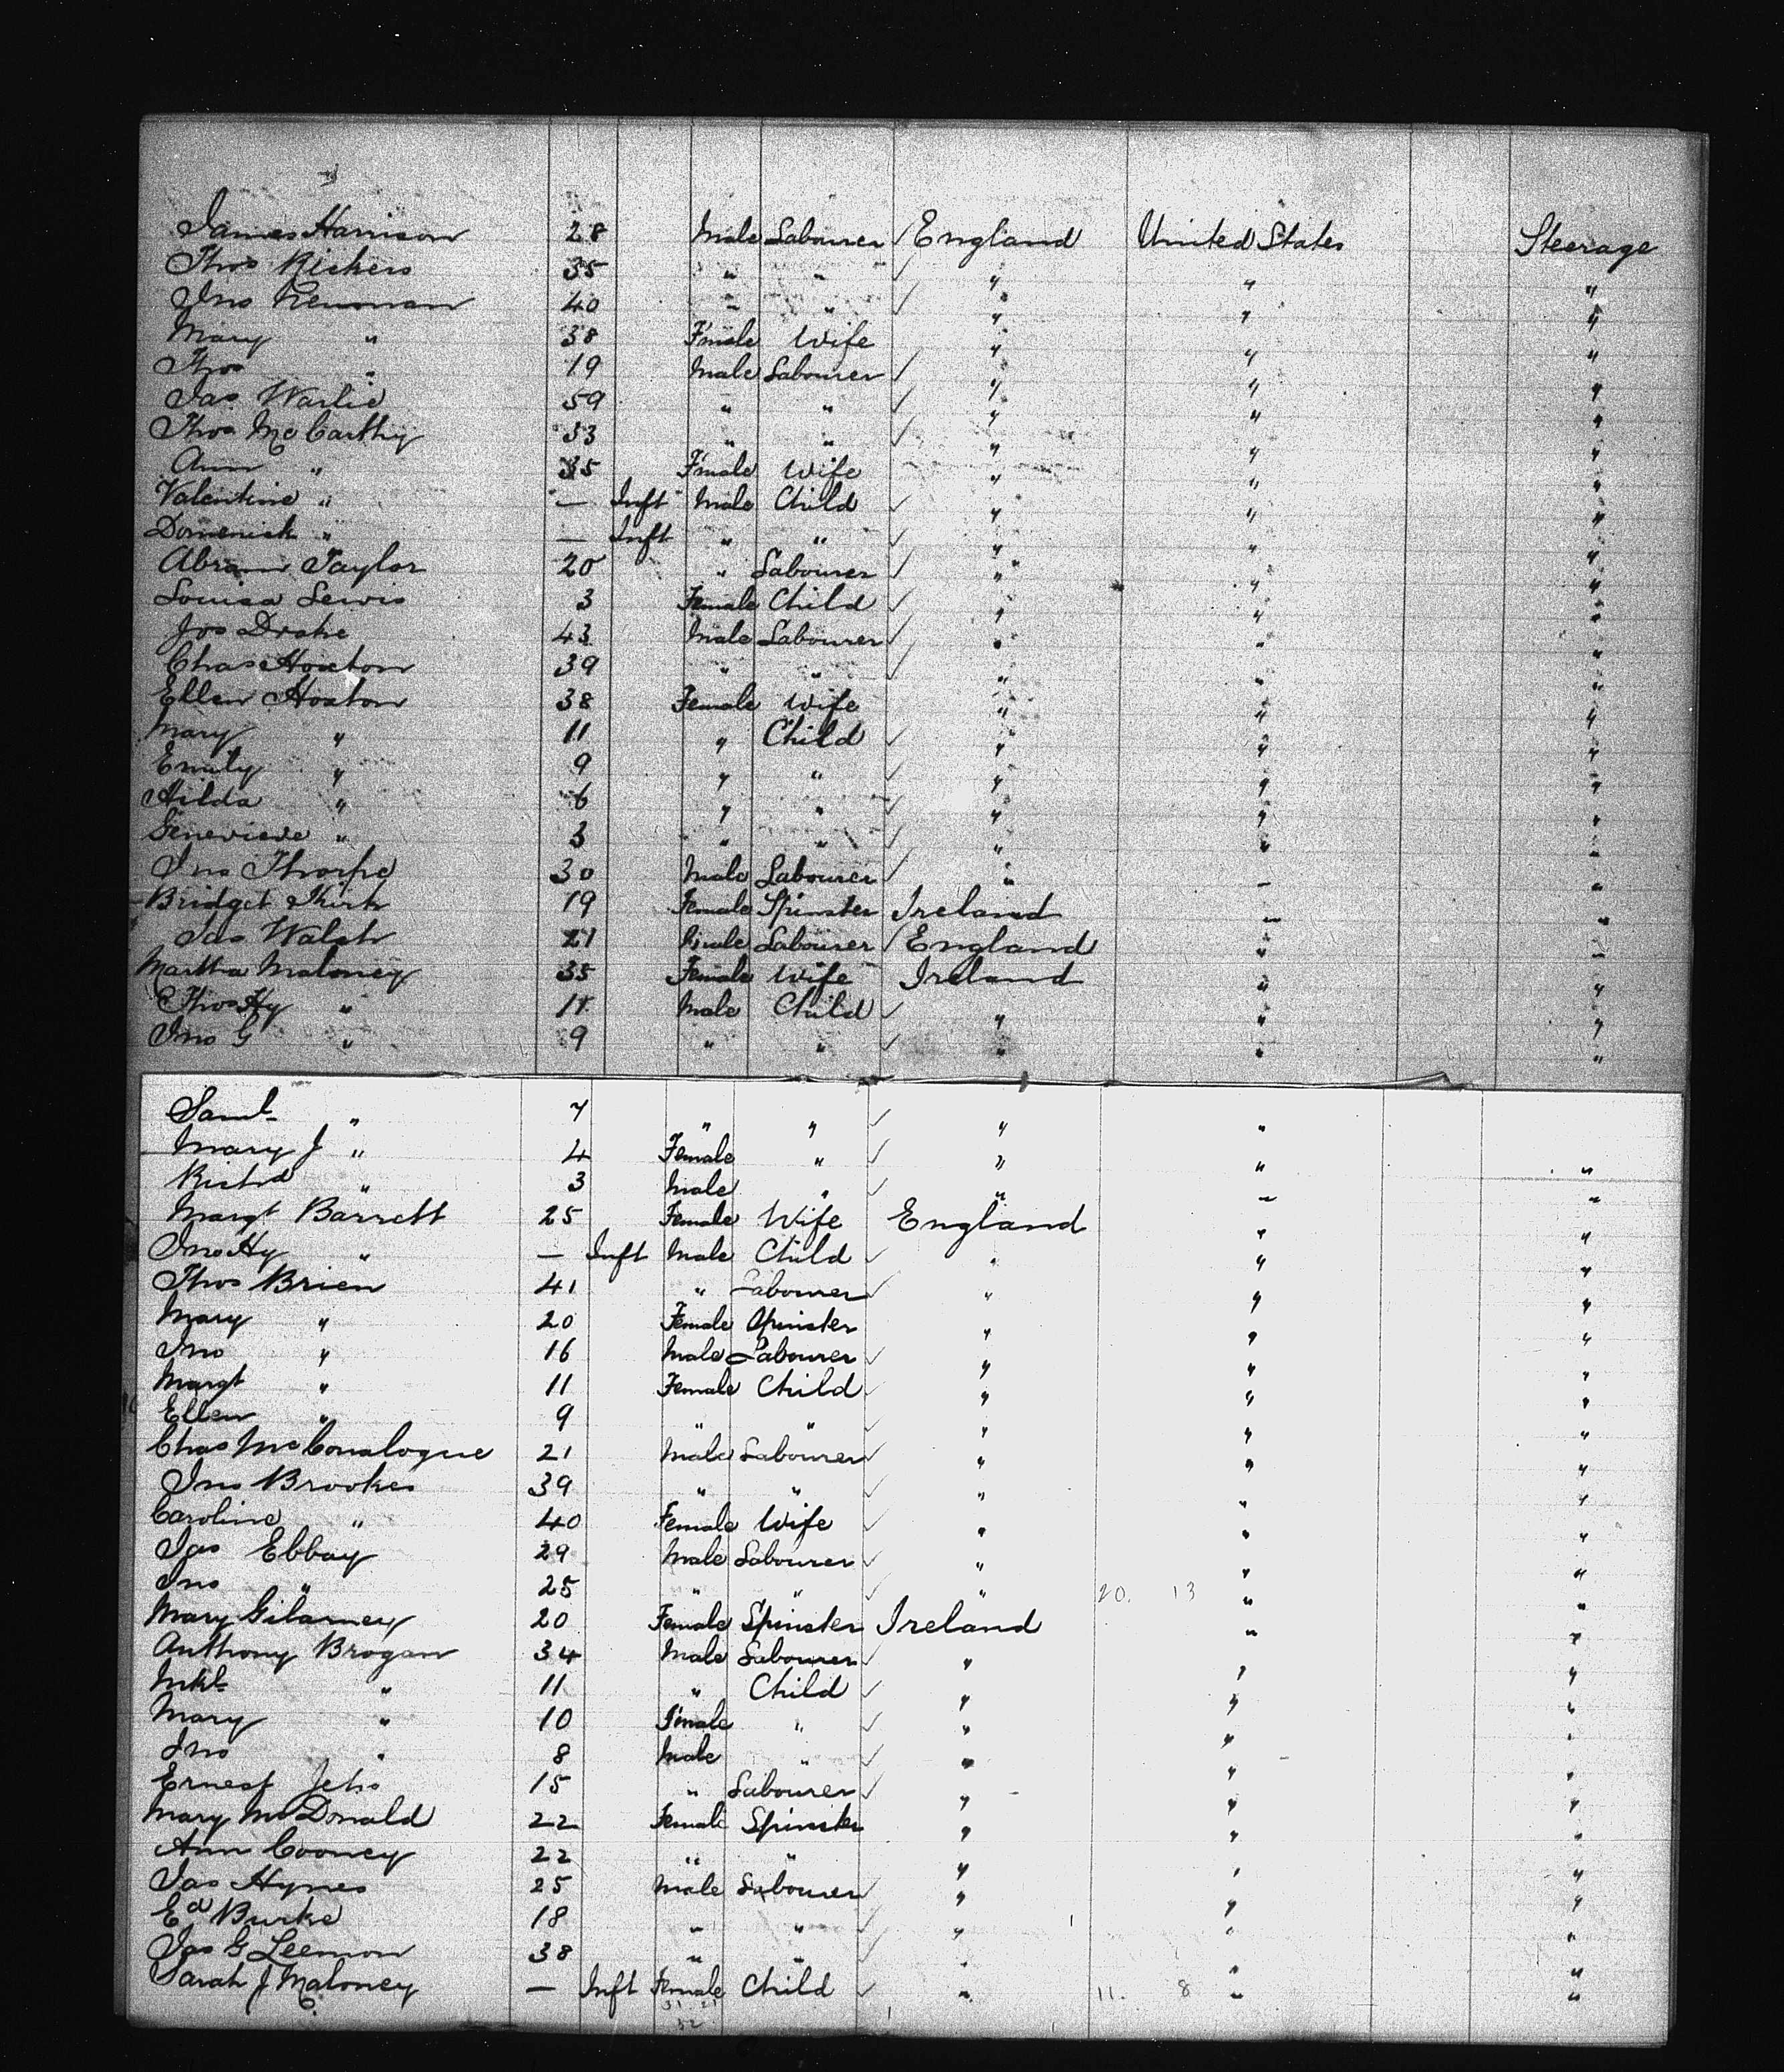 James Harrison 28 Male Labourer ✓ England United States Steerage
Thos Rickers 35 " " ✓ " " "
Jno Newman 40 " " ✓ " " "
Mary " 38 Female Wife " " "
Thos " 19 Male Labourer ✓ " " "
Jas Warlie 59 " " ✓ " " "
Thos McCarthy 33 " " ✓ " " "
Ann " 35 Female Wife " " "
Valentine " — Inft Male Child ✓ " " "
Domenick " — Inft " " ✓ " " "
Abram Taylor 20 " Labourer ✓ " " "
Louisa Lewis 3 Female Child ✓ " " "
Jos Drake 43 Male Labourer ✓ " " "
Chas Hoxton 39 " " ✓ " " "
Ellen Hoxton 38 Female Wife " " "
Mary " 11 " Child ✓ " " "
Emily " 9 " " ✓ " " "
Hilda " 6 " " ✓ " " "
Genevieve " 3 " " ✓ " " "
Jno Thorpe 30 Male Labourer ✓ " " "
Bridget Kirk 19 Female Spinster Ireland " "
Jas Walsh 21 Male Labourer ✓ England " "
Martha Maloney 35 Female Wife Ireland " "
Thos Hy " 11 Male Child ✓ " " "
Jno G " 9 " " ✓ " " "
Saml " 7 " " ✓ " "
Mary J " 4 Female " ✓ " " "
Richd " 3 Male " ✓ " " "
Margt Barrett 25 Female Wife England " "
Jno Hy " — Inft Male Child ✓ " " "
Thos Brien 41 " Labourer ✓ " " "
Mary " 20 Female Spinster " " "
Jno " 16 Male Labourer ✓ " " "
Margt " 11 Female Child ✓ " " "
Ellen " 9 " " ✓ " " "
Chas McConalogue 21 Male Labourer ✓ " " "
Jno Brookes 39 " " ✓ " " "
Caroline " 40 Female Wife ✓ " " "
Jas Ebbay 29 Male Labourer ✓ " " "
Jno " 25 " " ✓ " 20. 13 " "
Mary Gilarney 20 Female Spinster Ireland " "
Anthony Brogan 34 Male Labourer ✓ " " "
Mkl " 11 " Child ✓ " " "
Mary " 10 Female " ✓ " " "
Jno " 8 Male " ✓ " " "
Ernest 15 " Labourer ✓ " " "
Mary McDonald 22 Female Spinster " " "
Ann Cooney 22 " " " " "
Jas Hynes 25 Male Labourer ✓ " " "
Ed Burke 18 " " ✓ " " "
Jas G Leemon 38 " " ✓ " " "
Sarah J Maloney — Inft Female Child ✓ " 11. 8 " "